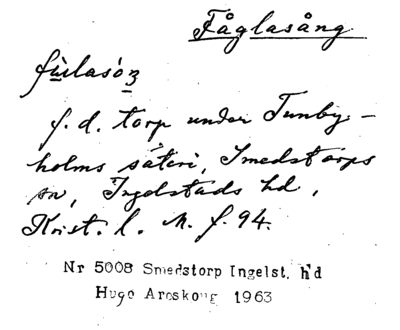 Fåglasång
fùlasóz
f. d. torp under Tunby-
holms säteri, Smedstorps
sn, Ingelstads hd,
Krist. l. M. f. 94.
Nr 5008 Smedstorp Ingelst. hd
Hugo Areskoug 1963